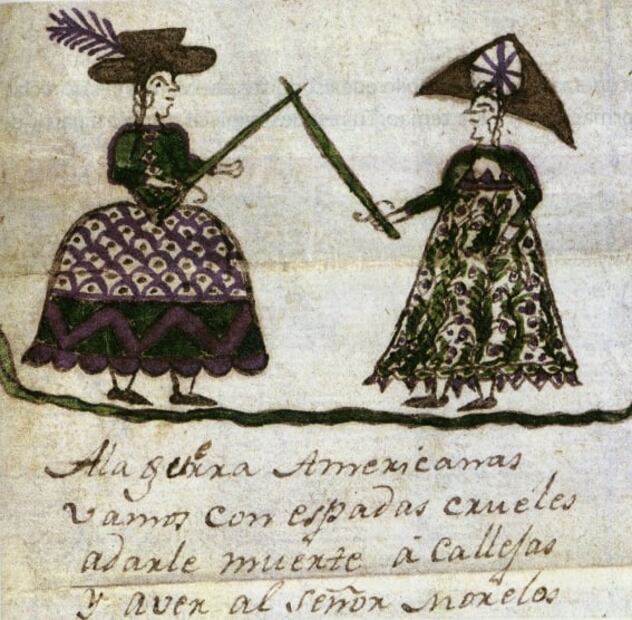 Ala guerra Americanas
vamos con espadas crueles
adarle muerte á Callejas
y aver al señor Morelos